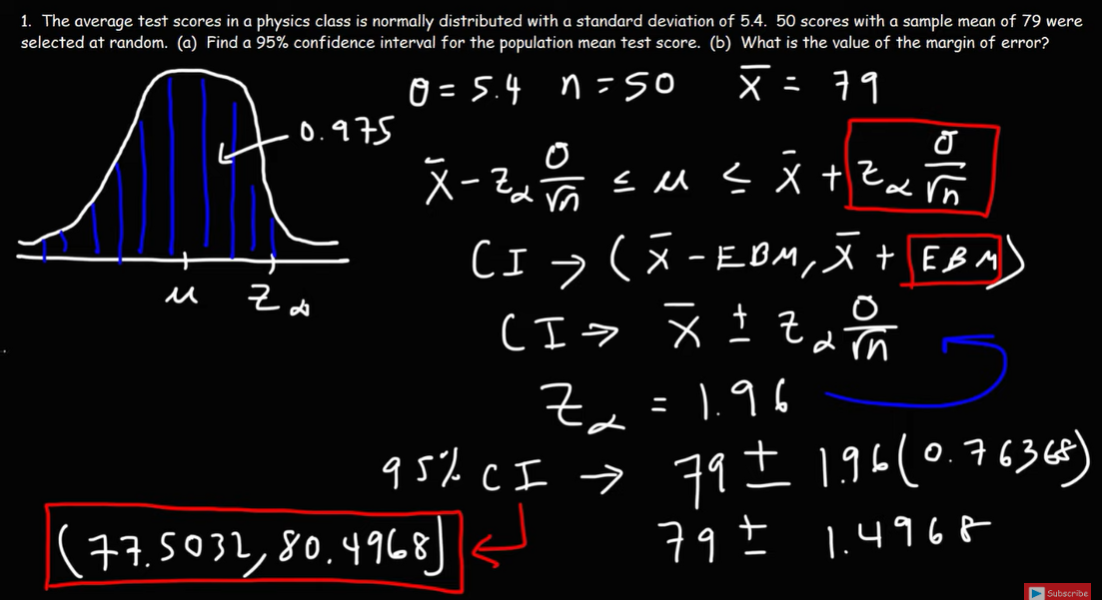 1. The average test scores in a physics class is normally distributed with a standard deviation of 5.4. 50 scores with a sample mean of 79 were
selected at random. (a) Find a 95% confidence interval for the population mean test score. (b) What is the value of the margin of error?
σ = 5.4 n = 50 x̄ = 79
0.975
x̄ - zα σ/√n ≤ μ ≤ x̄ + zα σ/√n
CI → (x̄ - EBM, x̄ + EBM)
μ zα
CI → x̄ ± zα σ/√n
zα = 1.96
95% CI → 79 ± 1.96(0.76368)
79 ± 1.4968
(77.5032, 80.4968)
Subscribe